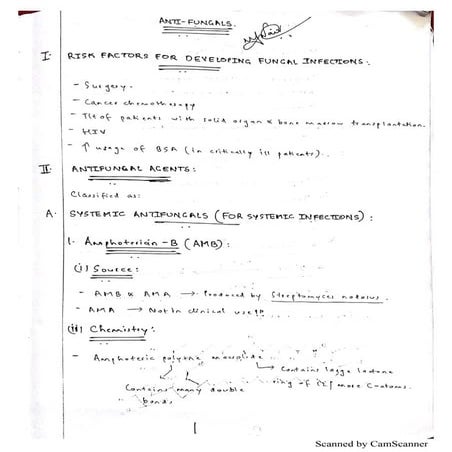 ANTI-FUNGALS.
I. RISK FACTORS FOR DEVELOPING FUNGAL INFECTIONS:
- Surgery.
- Cancer chemotherapy
- Ttt of patients with solid organ & bone marrow transplantation.
- HIV
- ↑ usage of BSA (in critically ill patients).
II. ANTIFUNGAL AGENTS:
Classified as:
A. SYSTEMIC ANTIFUNGALS (FOR SYSTEMIC INFECTIONS):
1. Amphotericin-B (AMB):
(i) Source:
- AMB & AMA → Produced by Streptomyces nodosus.
- AMA → Not in clinical use!!
(ii) Chemistry:
- Amphoteric polyene macrolide
→ Contains large lactone
ring of 12/more C-atoms.
Contains many double
bonds
1
Scanned by CamScanner